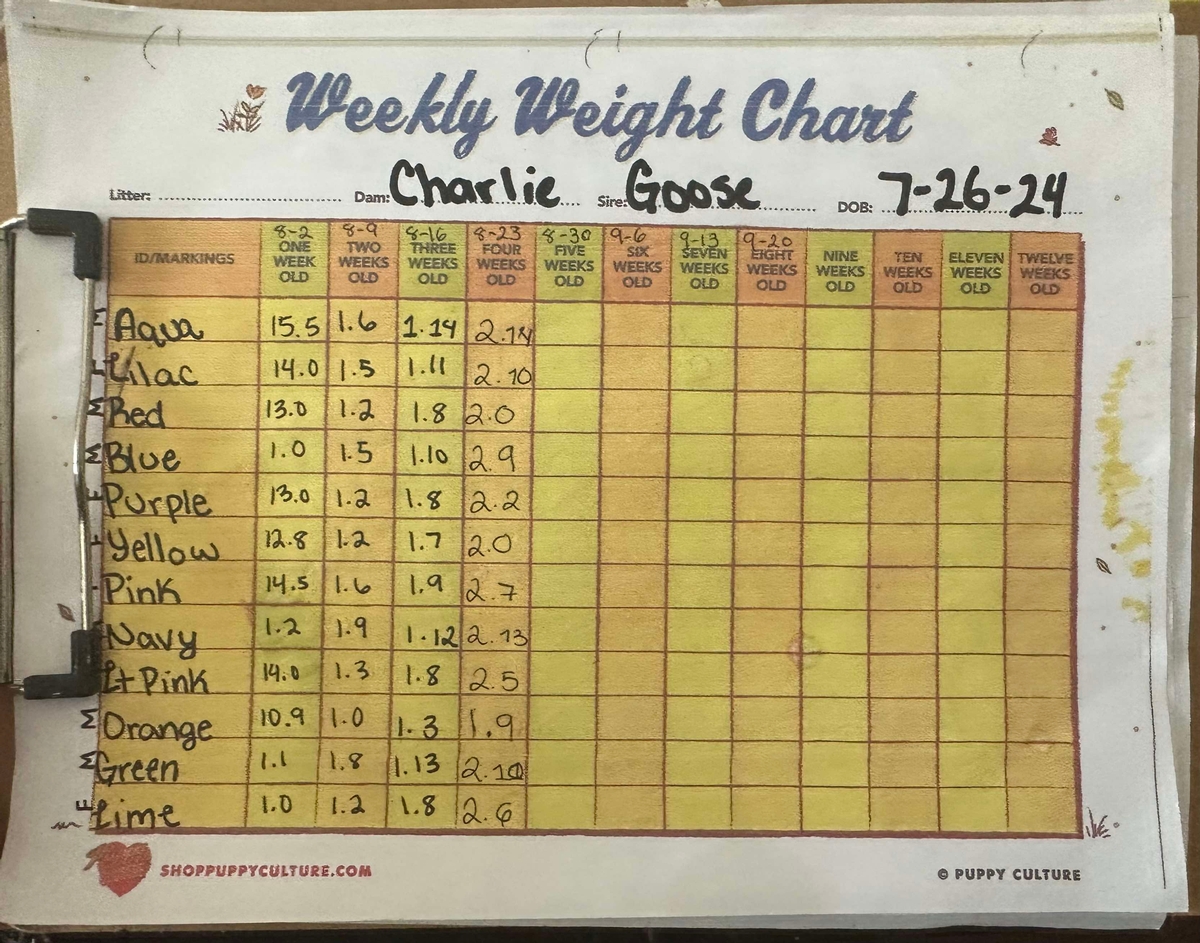 Weekly Weight Chart
Litter: Dam: Charlie Sire: Goose DOB: 7-26-24
ID/MARKINGS 8-2 ONE WEEK OLD 8-9 TWO WEEKS OLD 8-16 THREE WEEKS OLD 8-23 FOUR WEEKS OLD 8-30 FIVE WEEKS OLD 9-6 SIX WEEKS OLD 9-13 SEVEN WEEKS OLD 9-20 EIGHT WEEKS OLD NINE WEEKS OLD TEN WEEKS OLD ELEVEN WEEKS OLD TWELVE WEEKS OLD
M Aqua 15.5 1.6 1.14 2.14
F Lilac 14.0 1.5 1.11 2.10
M Red 13.0 1.2 1.8 2.0
M Blue 1.0 1.5 1.10 2.9
F Purple 13.0 1.2 1.8 2.2
F Yellow 12.8 1.2 1.7 2.0
Pink 14.5 1.6 1.9 2.7
Navy 1.2 1.9 1.12 2.13
Lt Pink 14.0 1.3 1.8 2.5
M Orange 10.9 1.0 1.3 1.9
M Green 1.1 1.8 1.13 2.10
F Lime 1.0 1.2 1.8 2.6
SHOPPUPPYCULTURE.COM © PUPPY CULTURE